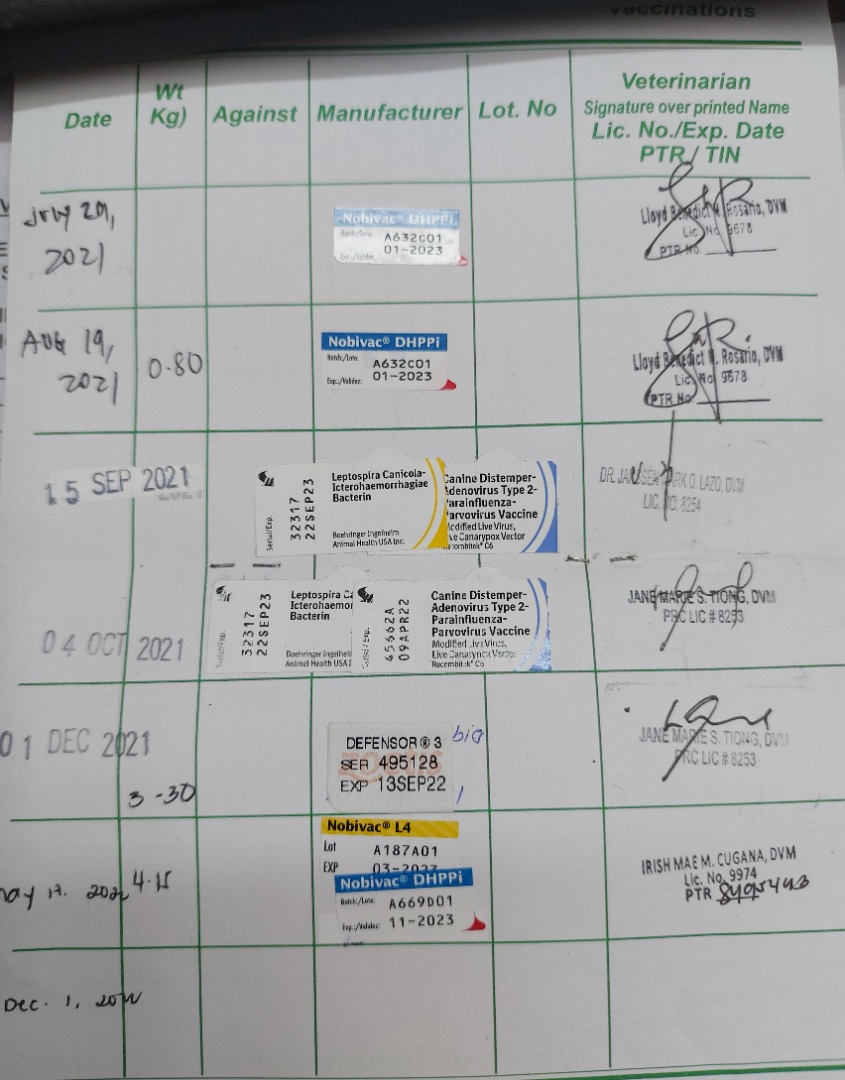 vaccinations
Date
Wt
Kg)
Against
Manufacturer
Lot. No
Veterinarian
Signature over printed Name
Lic. No./Exp. Date
PTR / TIN
July 29,
2021
Nobivac® DHPPi
Batch/Lote:
A632C01
01-2023
Exp./Validez:
Lloyd Benedict M. Rosario, DVM
Lic. No. 9678
PTR No.
AUG 19,
2021
0.80
Nobivac® DHPPi
Batch:/Lote:
A632C01
Exp.:/Validez:
01-2023
Lloyd Benedict M. Rosario, DVM
Lic. No 9678
PTR No
15 SEP 2021
Serial/Exp.
32317
22SEP23
Leptospira Canicola-
Icterohaemorrhagiae
Bacterin
Boehringer Ingelheim
Animal Health USA Inc.
Canine Distemper-
Adenovirus Type 2-
Parainfluenza-
Parvovirus Vaccine
Modified Live Virus,
Live Canarypox Vector
Recombitek® C6
O. LAZO, DVM
LIC. NO. 8254
04 OCT 2021
Serial/Exp.
32317
22SEP23
Leptospira Ca
Icterohaemor
Bacterin
Boehringer Ingelhei
Animal Health USA I
Serial/Exp.
45662A
09APR22
Canine Distemper-
Adenovirus Type 2-
Parainfluenza-
Parvovirus Vaccine
Modified Live Virus,
Live Canarypox Vector
Recombitek® C6
JANE MARIE S. TIONG, DVM
PRC LIC # 8253
01 DEC 2021
3-30
DEFENSOR® 3
SER 495128
EXP 13SEP22
zoetis
big
JANE MARIE S. TIONG, DVM
PRC LIC # 8253
4.15
Nobivac® L4
Lot
A187A01
EXP
03-2023
Nobivac® DHPPi
Batch:/Lote:
A669D01
Exp.:/Validez:
11-2023
IRISH MAE M. CUGANA, DVM
Lic. No. 9974
PTR
Dec. 1, 2022